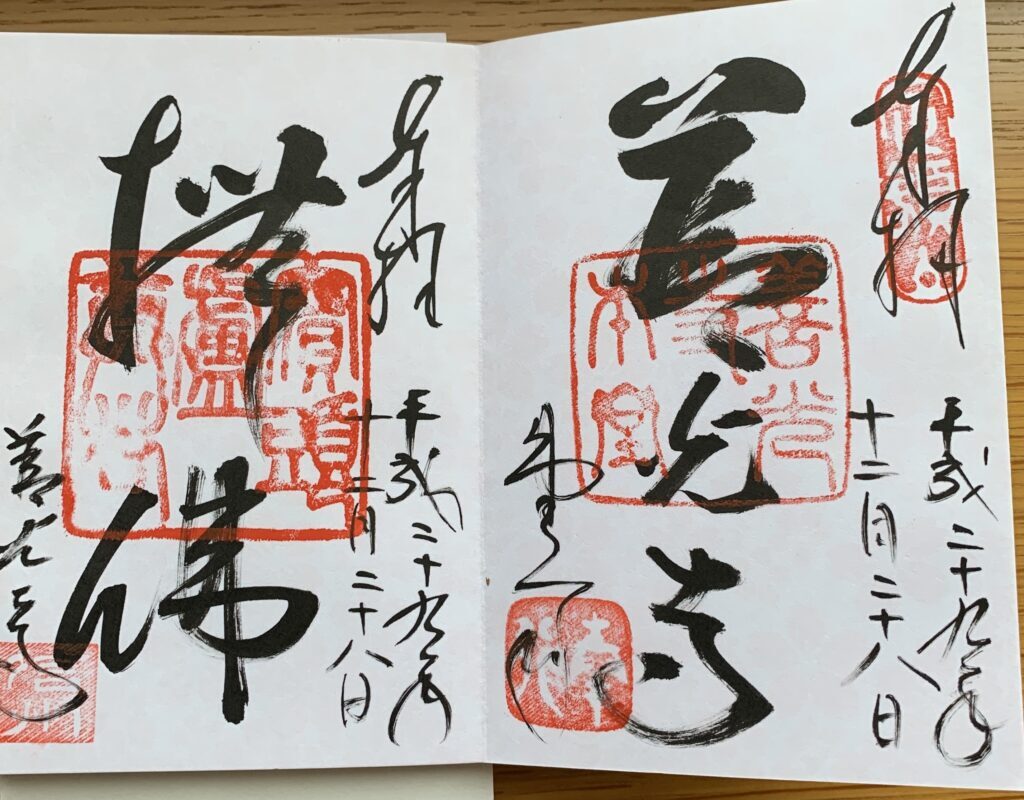 奉拝
平成二十九年
十二月二十八日
善光寺
奉拝
平成二十九年
十二月二十八日
撫佛
賓頭盧尊者
善光寺